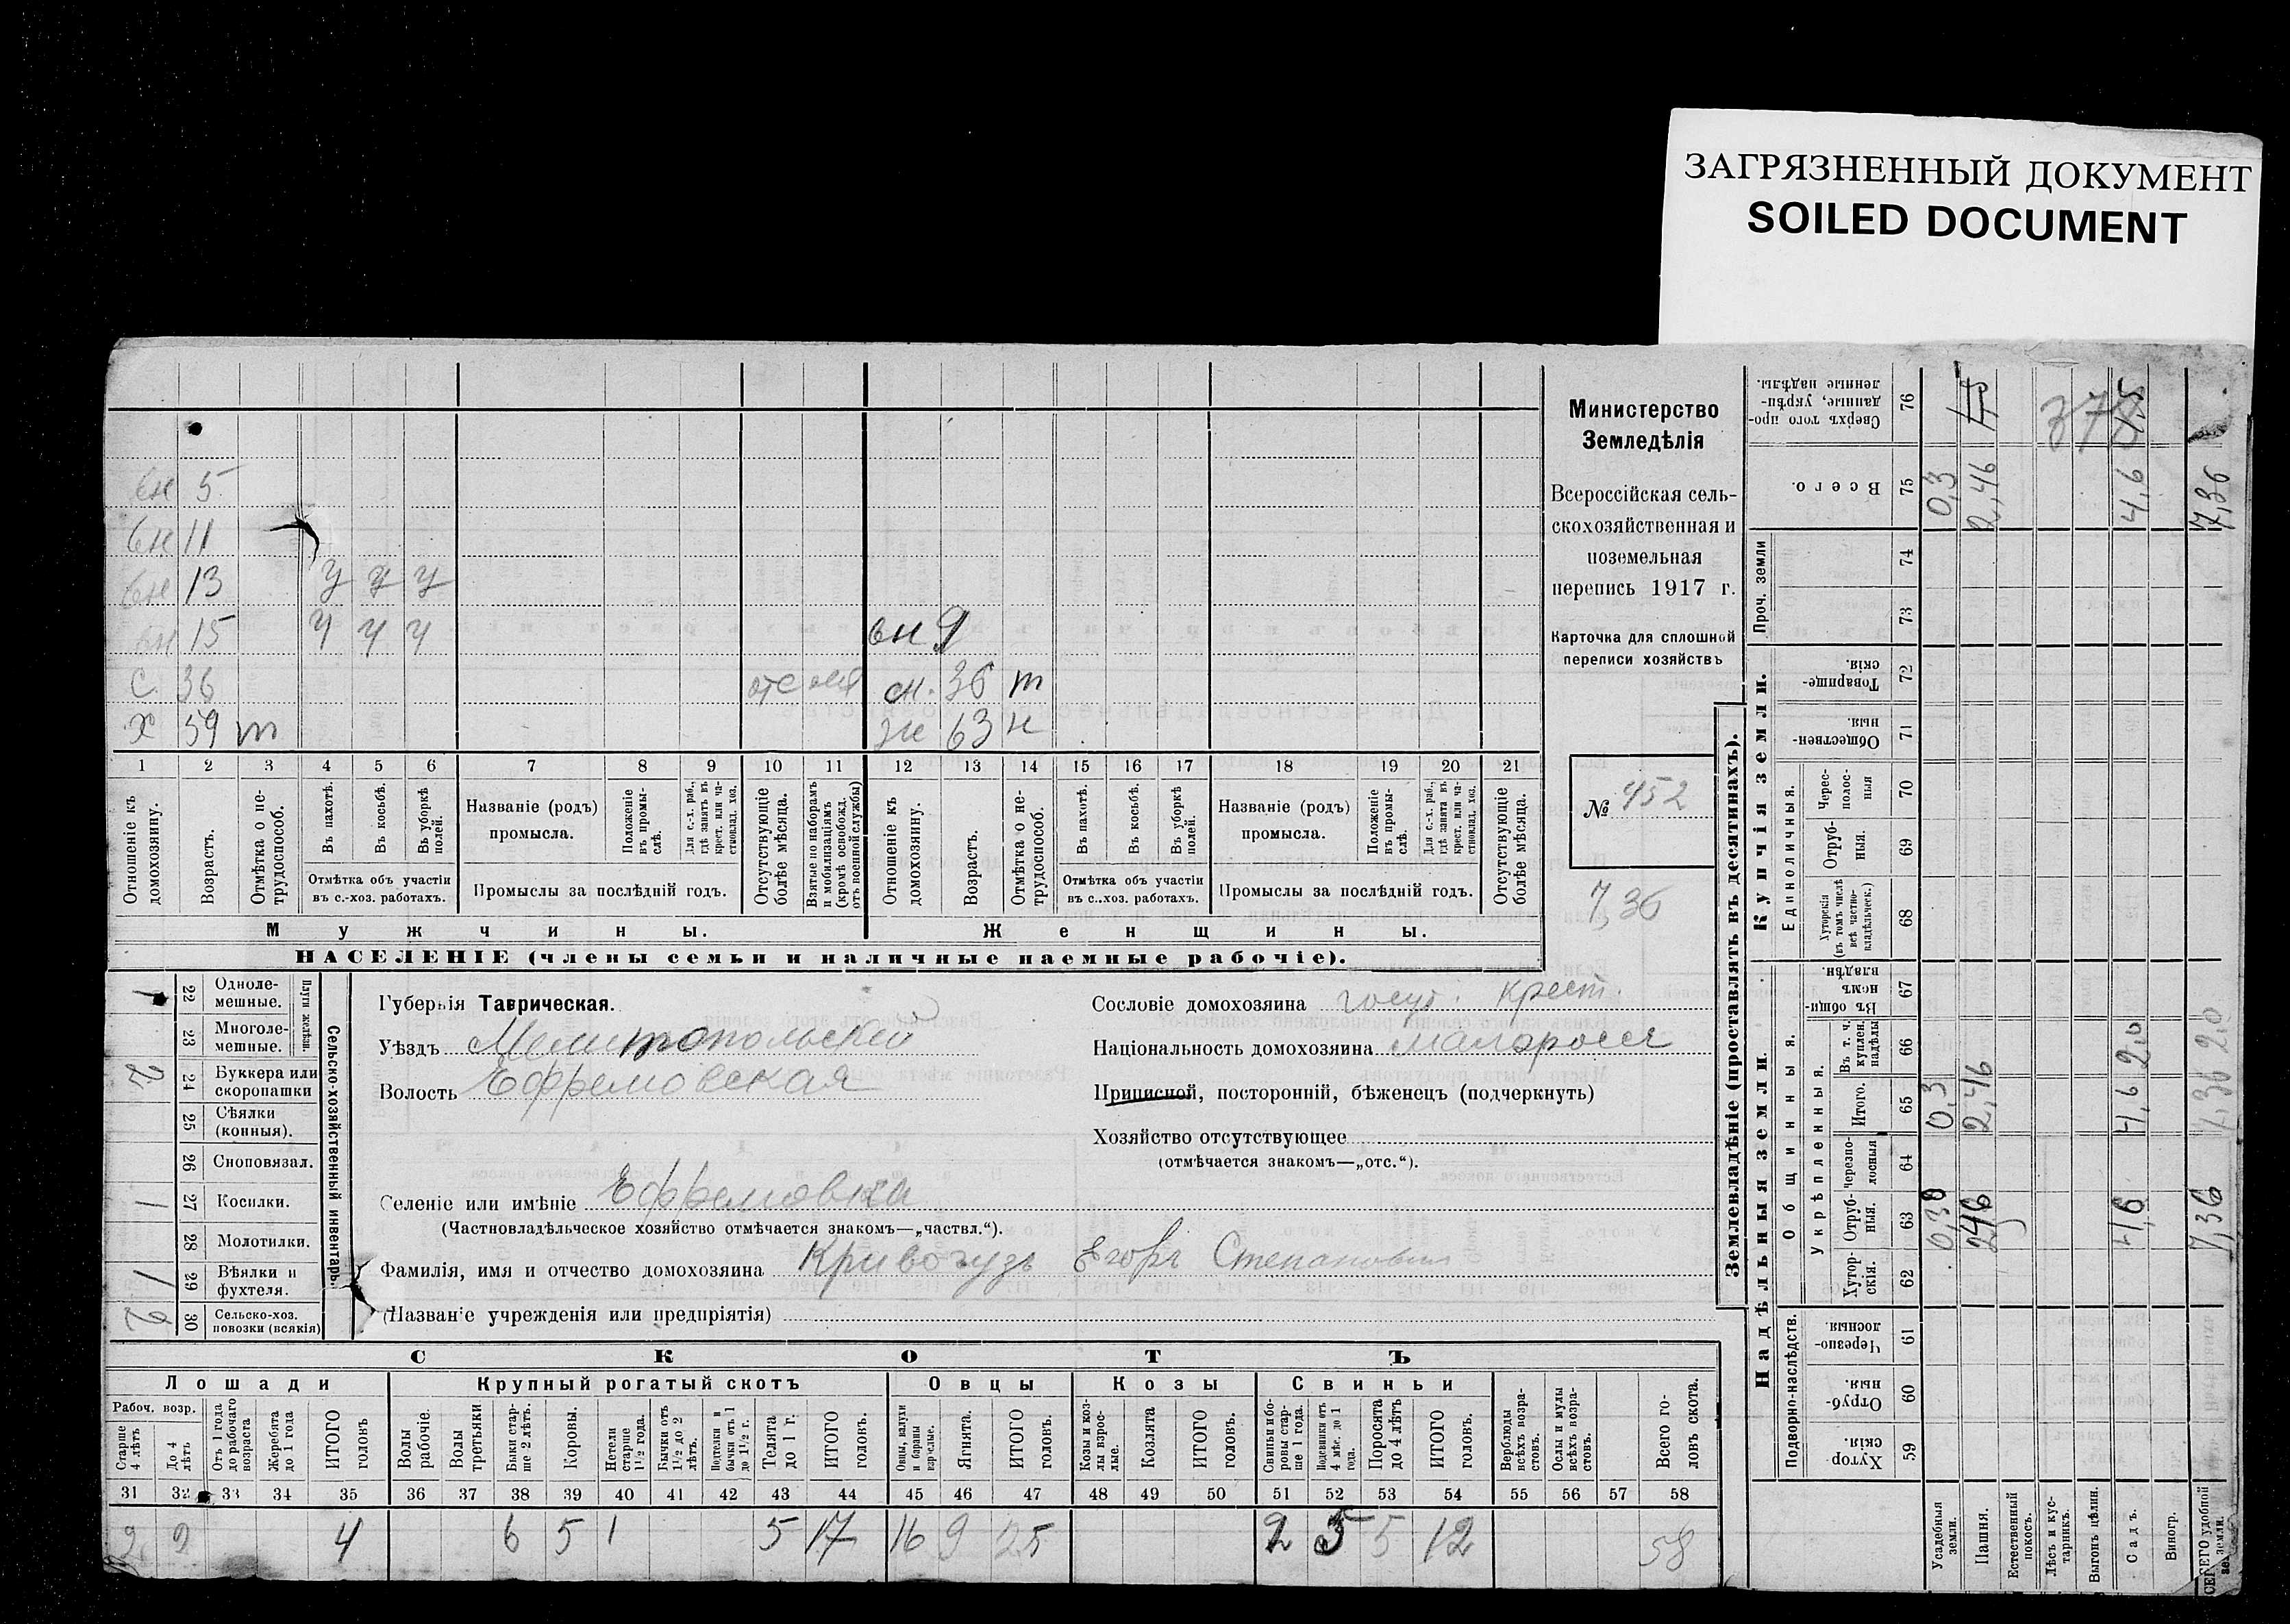 ЗАГРЯЗНЕННЫЙ ДОКУМЕНТ
SOILED DOCUMENT
вн 5
вн 11
вн 13 у у у
вн 15 у у у вн 9
с. 36 отс сн. 36 т
х 59 т ж 63 н
1 2 3 4 5 6 7 8 9 10 11 12 13 14 15 16 17 18 19 20 21
Отношеніе къ домохозяину.
Возрастъ.
Отмѣтка о не-трудоспособ.
Въ пахотѣ.
Въ косьбѣ.
Въ уборкѣ полей.
Отмѣтка объ участіи
въ с.-хоз. работахъ.
Названіе (родъ)
промысла.
Положеніе въ промы-слѣ.
Для с.-х. раб., гдѣ занятъ въ крест. или ча-стновлад. хоз.
Промыслы за послѣдній годъ.
Отсутствующіе болѣе мѣсяца.
Взятые по наборамъ и мобилизаціямъ (кромѣ освобожд. отъ военной службы)
Отношеніе къ домохозяину.
Возрастъ.
Отмѣтка о не-трудоспособ.
Въ пахотѣ.
Въ косьбѣ.
Въ уборкѣ полей.
Отмѣтка объ участіи
въ с..хоз. работахъ.
Названіе (родъ)
промысла.
Положеніе въ промы-слѣ.
Для с.-х. раб., гдѣ занята въ крест. или ча-стновлад. хоз.
Промыслы за послѣдній годъ.
Отсутствующіе болѣе мѣсяца.
Мужчины.
Женщины.
НАСЕЛЕНІЕ (члены семьи и наличные наемные рабочіе).
Министерство
Земледѣлія
Всероссійская сель-
скохозяйственная и
поземельная
перепись 1917 г.
Карточка для сплошной
переписи хозяйствъ
№ 452
7,36
Сельско-хозяйственный инвентарь.
Плуги желѣзн.
1 22 Одноле-мешные.
23 Многоле-мешные.
2 24 Буккера или скоропашки
25 Сѣялки (конныя).
26 Сноповязал.
1 27 Косилки.
28 Молотилки.
1 29 Вѣялки и фухтеля.
2 30 Сельско-хоз. повозки (всякія)
Губернія Таврическая.
Уѣздъ Мелитопольскій
Волость Ефремовская
Селеніе или имѣніе Ефремовка
(Частновладѣльческое хозяйство отмѣчается знакомъ—„частвл.“).
Фамилія, имя и отчество домохозяина Кривогузъ Егоръ Степановичъ
(Названіе учрежденія или предпріятія)
Сословіе домохозяина госуд. крест.
Національность домохозяина малороссъ
Приписной, посторонній, бѣженецъ (подчеркнуть)
Хозяйство отсутствующее
(отмѣчается знакомъ—„отс.“).
СКОТЪ
Лошади
Крупный рогатый скотъ
Овцы
Козы
Свиньи
Рабоч. возр.
Старше 4 лѣтъ
До 4 лѣтъ
Отъ 1 года до рабочаго возраста
Жеребята до 1 года
ИТОГО головъ
Волы рабочіе.
Волы третьяки
Быки стар-ше 2 лѣтъ.
Коровы.
Нетели старше 1½ года.
Бычки отъ 1½ до 2 лѣтъ.
Подтелки и бычки отъ 1 до 1½ г.
Телята до 1 г.
ИТОГО головъ.
Овцы, валухи и бараны взрослые.
Ягнята.
ИТОГО головъ.
Козы и коз-лы взрос-лые.
Козлята
ИТОГО головъ.
Свиньи и бо-ровы стар-ше 1 года.
Подсвинки отъ 4 мѣс. до 1 года.
Поросята до 4 лѣтъ
ИТОГО головъ.
Верблюды всѣхъ возра-стовъ.
Ослы и мулы всѣхъ возра-стовъ.
Всего го-ловъ скота.
31 32 33 34 35 36 37 38 39 40 41 42 43 44 45 46 47 48 49 50 51 52 53 54 55 56 57 58
2 2 4 6 5 1 5 17 16 9 25 2 5 5 12 58
Землевладѣніе (проставлять въ десятинахъ).
Надѣльныя земли.
Купчія земли.
Подворно-наслѣдств.
Общинныя.
Укрѣпленныя.
Единоличныя.
Проч. земли
Сверхъ того про-данные, укрѣп-ленные надѣлы. 76
Всего. 75 0,3 2,46 4,6 7,36
378
74
73
Товарище-скія. 72
Обществен-ныя. 71
Черес-полос-ныя 70
Отруб-ныя. 69
Хуторскія (въ томъ числѣ всѣ частно-владѣльческ.) 68
Въ общи-номъ владѣн. 67
Въ т. ч. куплен. надѣлы 66 2,0 2,0
Итого. 65 0,3 2,46 4,6 7,36
Черезпо-лосныя 64
Отруб-ныя. 63 0,3 2,46 4,6 7,36
Хутор-скія. 62
Черезпо-лосныя 61
Отруб-ныя. 60
Хутор-скія. 59
Усадебныя земли.
Пашня.
Естественный покосъ.
Лѣсъ и кус-тарникъ.
Выгонъ цѣлин.
Садъ.
Виногр.
ВСЕГО удобной земли.